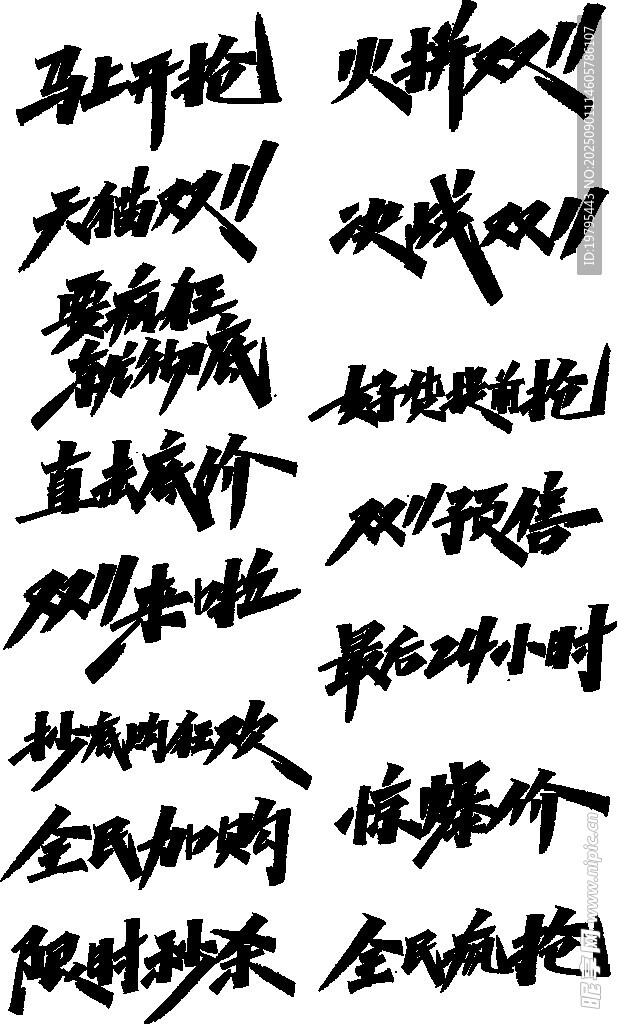 马上开抢
天猫双11
要疯狂
就彻底
直击底价
双11来啦
抄底购狂欢
全民加购
限时秒杀
火拼双11
决战双11
好货提前抢
双11预售
最后24小时
惊爆价
全民疯抢
昵享网 www.nipic.cn